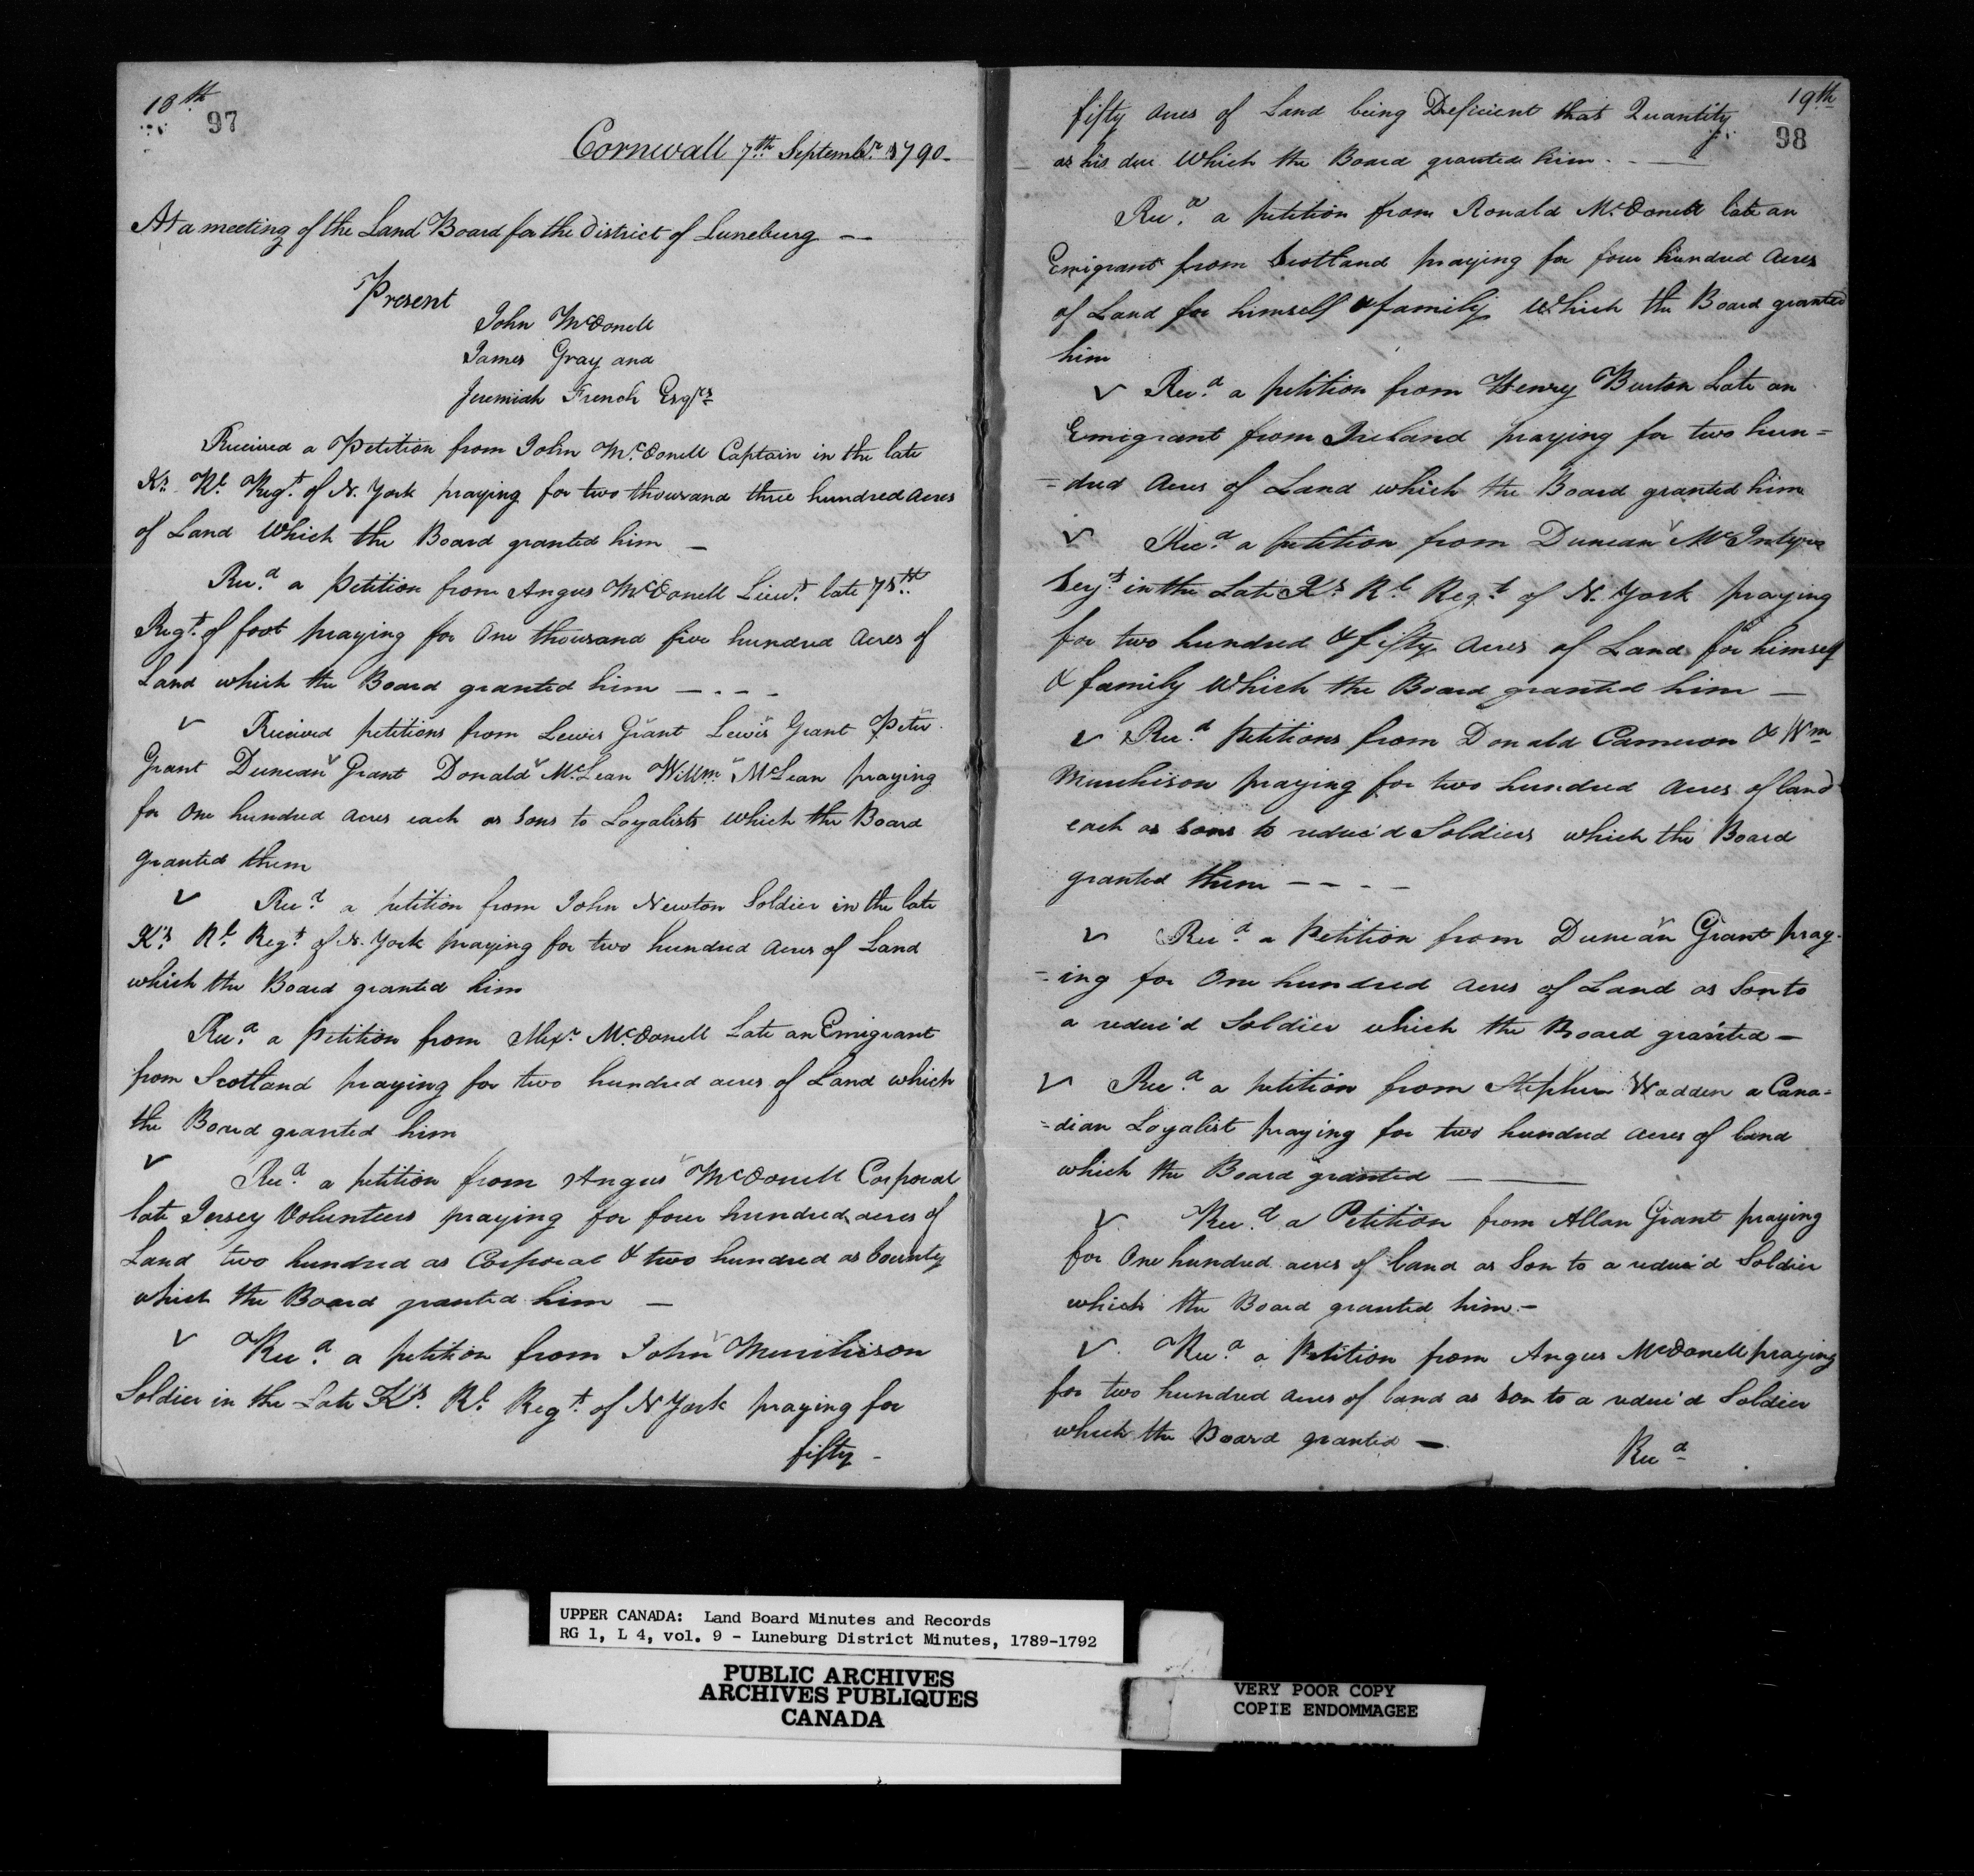 18th
97
Cornwall 7th Septembr. 1790-
At a meeting of the Land Board for the District of Luneburg —
Present
John McDonell
James Gray and
Jeremiah French Esqrs
Received a Petition from John McDonell Captain in the late
Ks. Rl. Regt. of N. York praying for two thousand three hundred acres
of Land Which the Board granted him —
Recd. a Petition from Angus McDonell Lieut. late
Regt. of foot praying for One thousand five hundred acres of
Land which the Board granted him — - - -
v Received petitions from Lewis Grant Lewis Grant Peter
Grant Duncan Grant Donald McLean Willm. McLean praying
for One hundred acres each as Sons to Loyalists which the Board
granted them
v Recd. a petition from John Newton Soldier in the late
K's. Rl. Regt. of N. York praying for two hundred acres of Land
which the Board granted him
Recd. a Petition from Alexr. McDonell Late an Emigrant
from Scotland praying for two hundred acres of Land which
the Board granted him
v Recd. a petition from Angus McDonell Corporal
late Jersey Volunteers praying for four hundred acres of
Land two hundred as Corporal & two hundred as bounty
which the Board granted him —
v Recd. a petition from John Murchison
Soldier in the Late K's. Rl. Regt. of N York praying for
fifty -
19th
98
fifty acres of Land being Deficient that Quantity
as his due Which the Board granted him - - —
Recd. a petition from Ronald McDonell late an
Emigrant from Scotland praying for four hundred acres
of Land for himself & family Which the Board granted
him
v Recd. a petition from Henry Burton Late an
Emigrant from Ireland praying for two hun=
=dred acres of Land which the Board granted him
v Recd. a petition from Duncan McIntyre
Serjt. in the Late K's Rl. Regt. of N. York praying
for two hundred & fifty acres of Land for himself
& family Which the Board granted him —
v Recd. petitions from Donald Cameron & Wm
Murchison praying for two hundred acres of land
each as sons to reduc'd Soldiers which the Board
granted them - - - -
v Recd. a Petition from Duncan Grant pray-
=ing for One hundred acres of Land as Son to
a reduc'd Soldier which the Board granted —
v Recd. a petition from Stephen Wadden a Cana=
=dian Loyalist praying for two hundred acres of land
which the Board granted — —
v Recd. a Petition from Allan Grant praying
for One hundred acres of land as Son to a reduc'd Soldier
which the Board granted him -
v Recd. a Petition from Angus McDonell praying
for two hundred acres of land as son to a reduc'd Soldier
which the Board granted —
Recd
UPPER CANADA: Land Board Minutes and Records
RG 1, L 4, vol. 9 - Luneburg District Minutes, 1789-1792
PUBLIC ARCHIVES
ARCHIVES PUBLIQUES
CANADA
VERY POOR COPY
COPIE ENDOMMAGEE